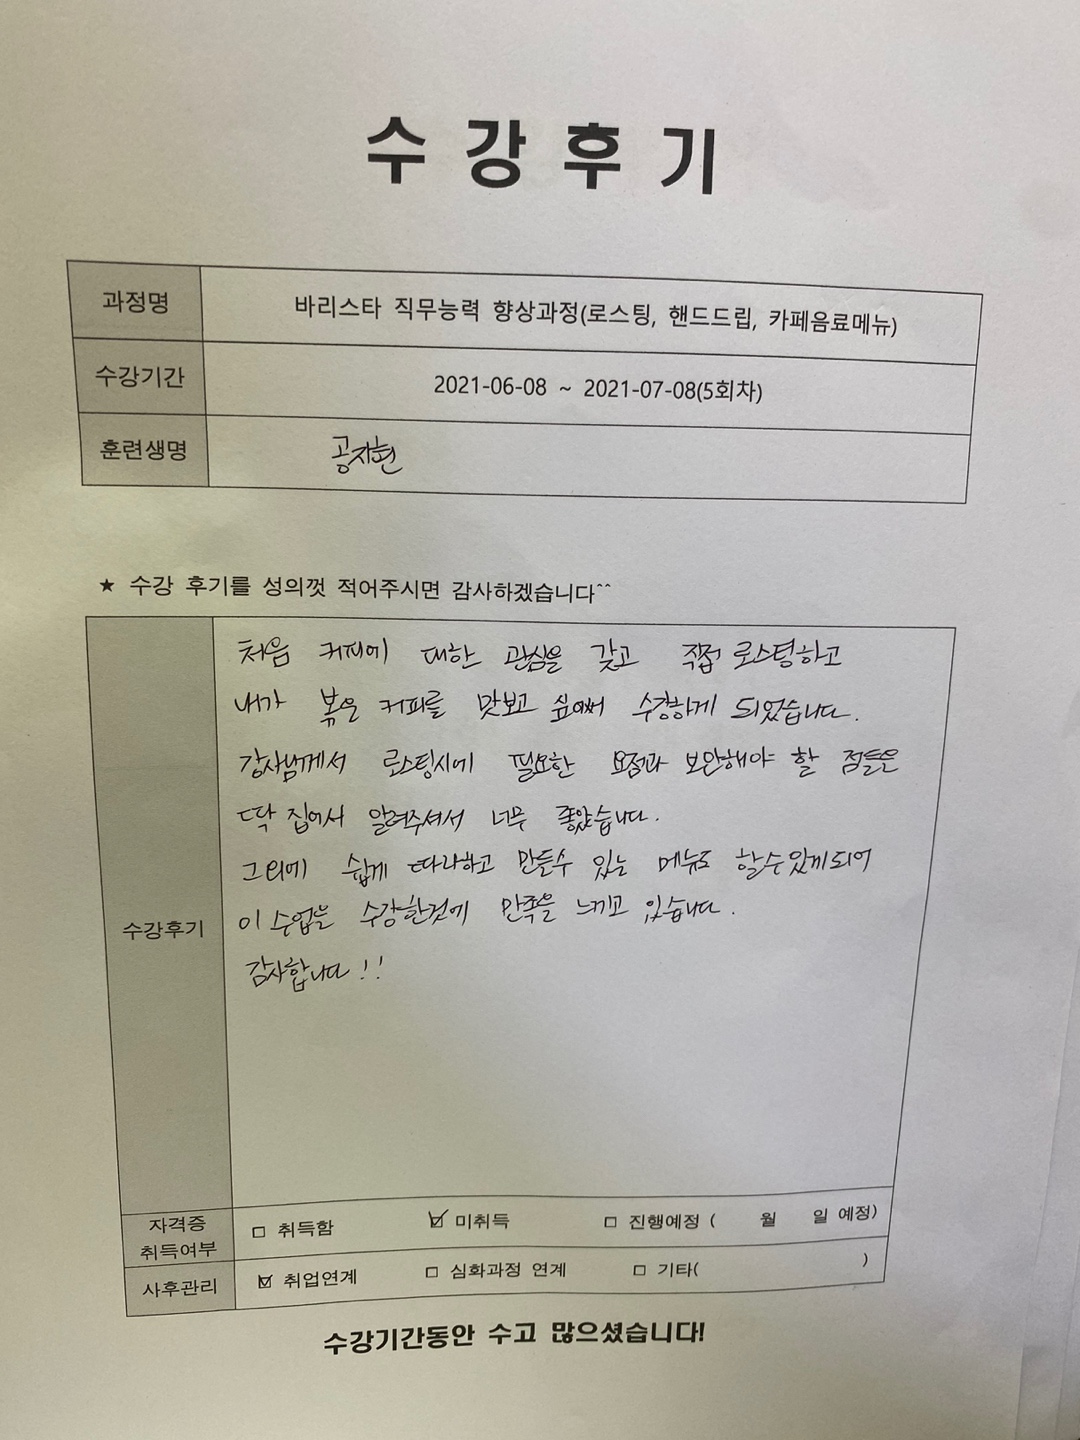 수강후기
과정명 바리스타 직무능력 향상과정(로스팅, 핸드드립, 카페음료메뉴)
수강기간 2021-06-08 ~ 2021-07-08(5회차)
훈련생명 공지현
★ 수강 후기를 성의껏 적어주시면 감사하겠습니다^^
처음 커피에 대한 관심을 갖고 직접 로스팅하고
내가 볶은 커피를 맛보고 싶어서 수강하게 되었습니다.
강사님께서 로스팅시에 필요한 요점과 보안해야 할 점들을
딱 집어서 알려주셔서 너무 좋았습니다.
그외에 쉽게 따라하고 만들수 있는 메뉴도 할수있게되어
수강후기 이 수업을 수강한것에 만족을 느끼고 있습니다.
감사합니다!!
자격증 취득여부 □ 취득함 ☑ 미취득 □ 진행예정 ( 월 일 예정)
사후관리 ☑ 취업연계 □ 심화과정 연계 □ 기타( )
수강기간동안 수고 많으셨습니다!